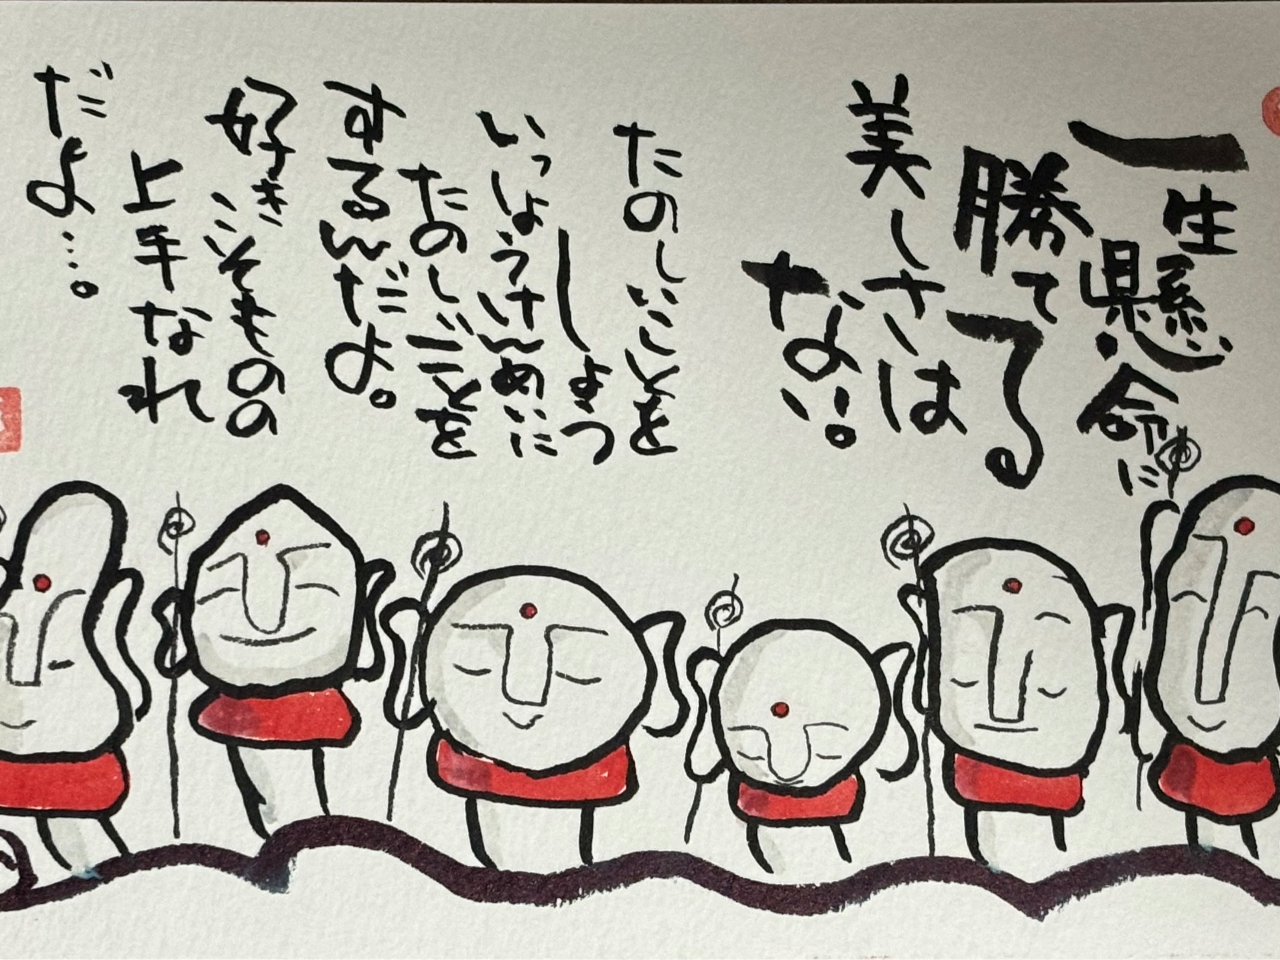 一生懸命に
勝てる
美しさは
ない。
たのしいことを
しょう
いっしょうけんめいに
たのしいことを
するんだよ。
好きこそものの
上手なれ
だよ…。